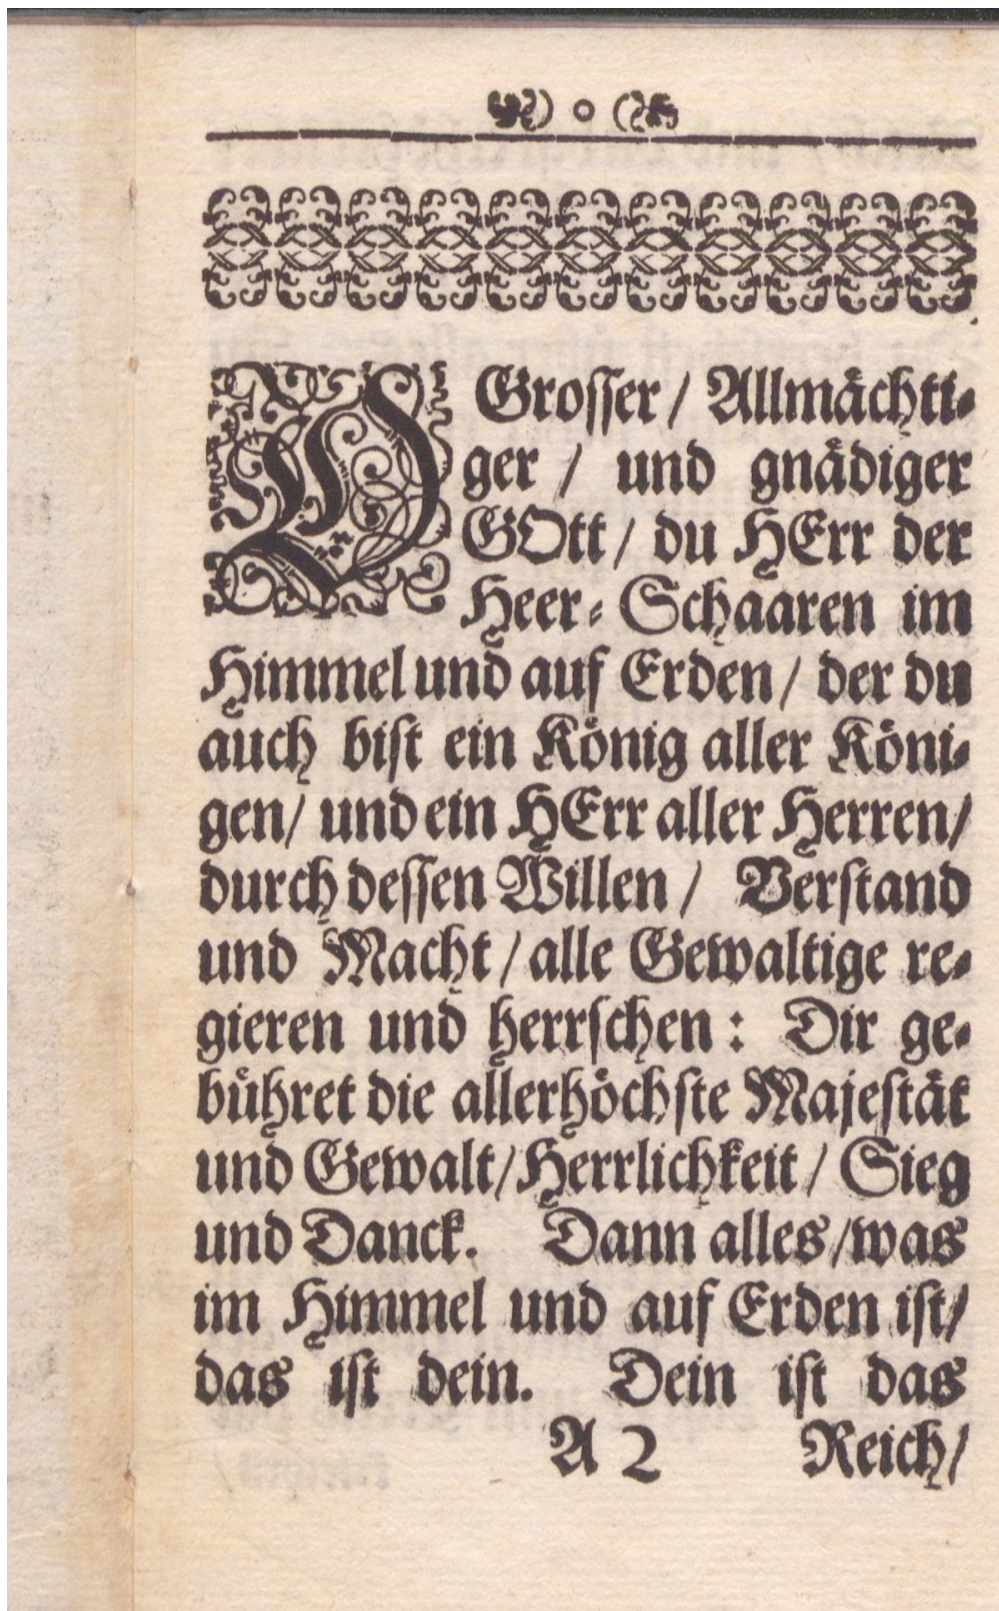 O Grosser / Allmächti-
ger / und gnädiger
GOtt / du HErr der
Heer-Schaaren im
Himmel und auf Erden / der du
auch bist ein König aller Köni-
gen / und ein HErr aller Herren /
durch dessen Willen / Verstand
und Macht / alle Gewaltige re-
gieren und herrschen: Dir ge-
bühret die allerhöchste Majestät
und Gewalt / Herrlichkeit / Sieg
und Danck. Dann alles / was
im Himmel und auf Erden ist /
das ist dein. Dein ist das
A 2 Reich /